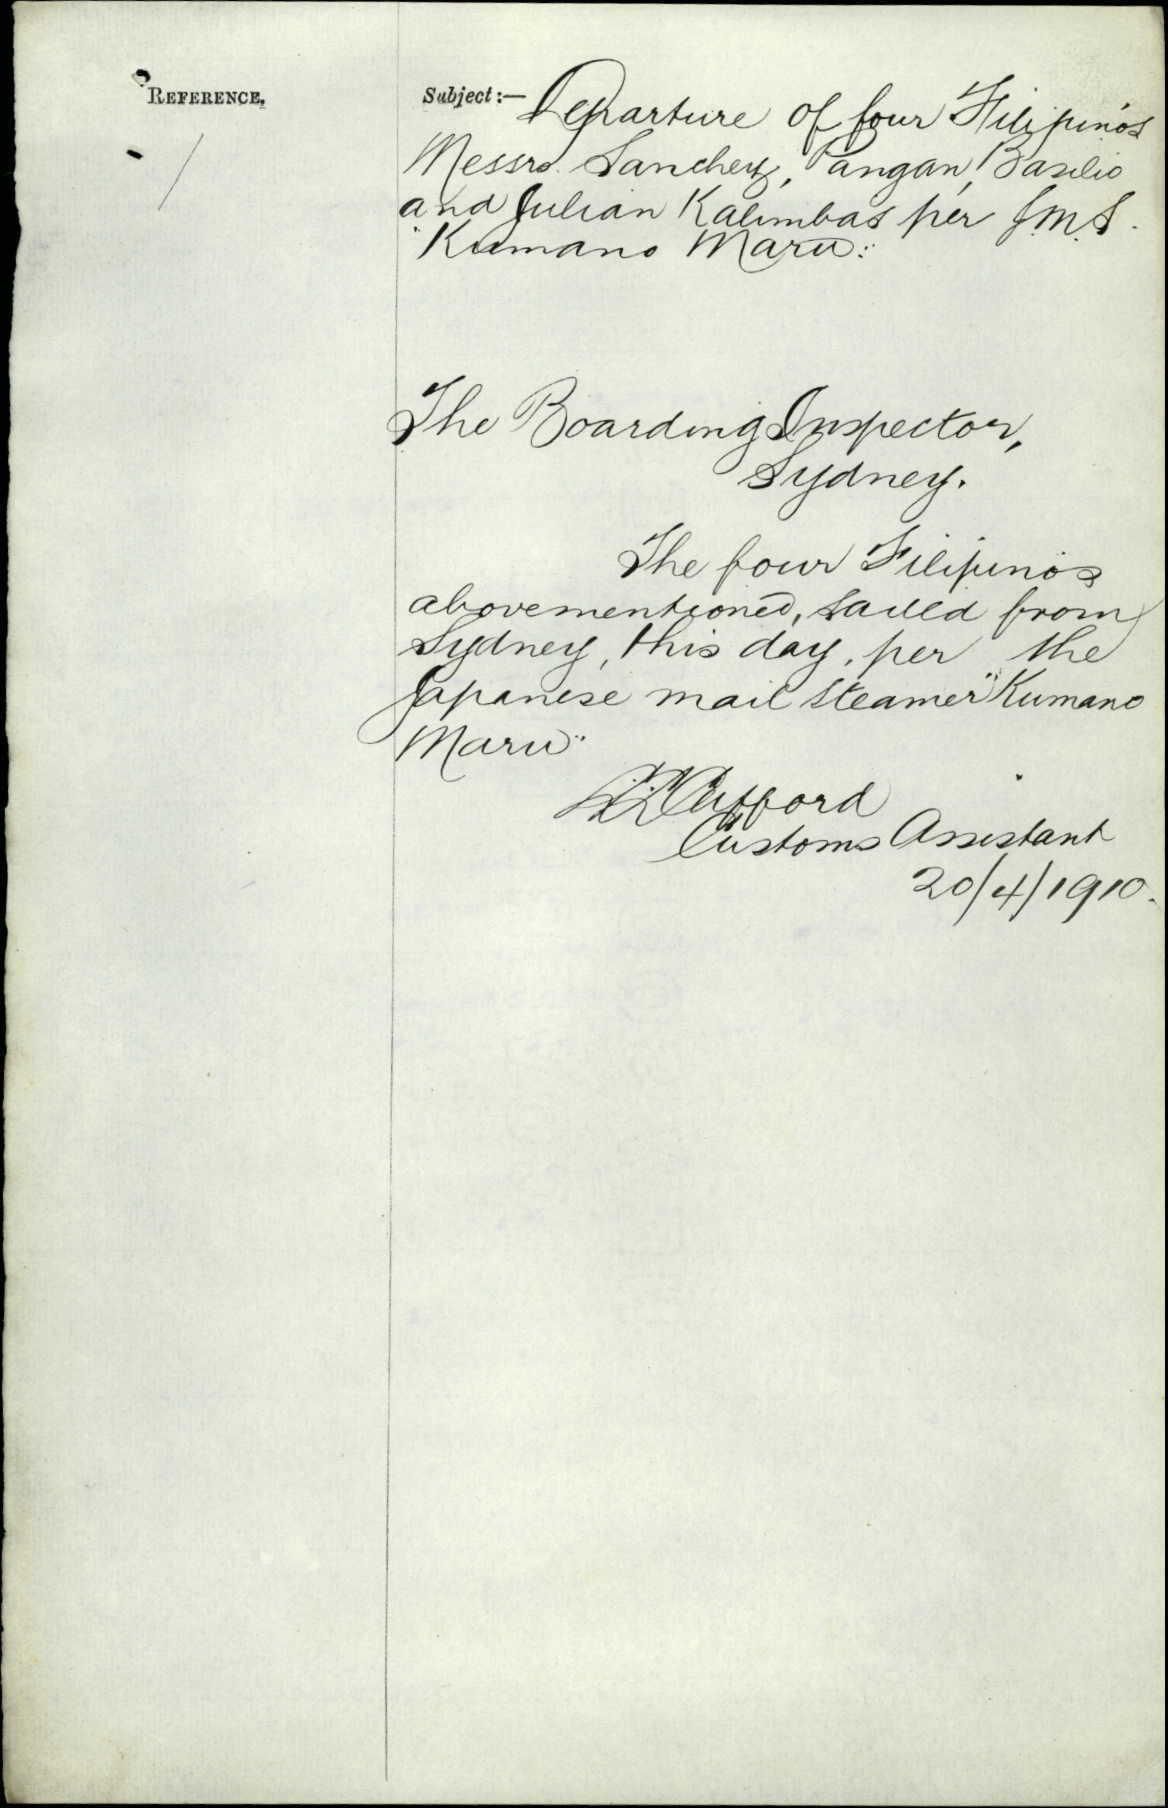 REFERENCE.
Subject:— Departure of four Filipino's
Messrs. Sanchez, Pangan, Basilio
and Julian Kalimbas per J.M.S.
"Kumano Maru".
The Boarding Inspector,
Sydney.
The four Filipino's
abovementioned, sailed from
Sydney, this day, per the
Japanese mail steamer "Kumano
Maru".
Clifford
Customs Assistant
20/4/1910.